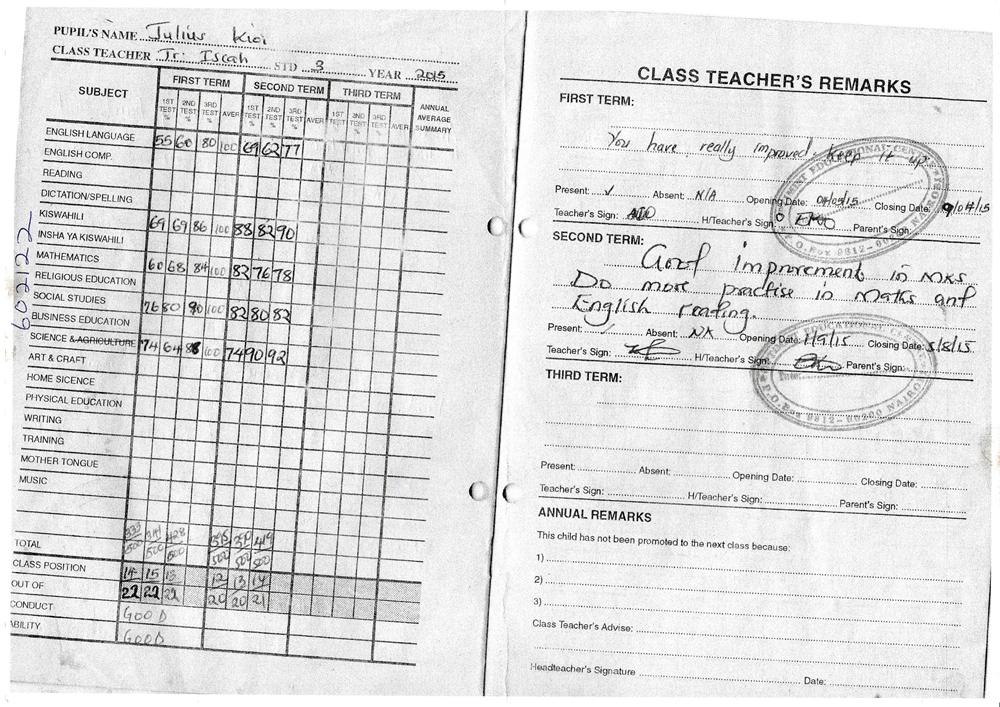 PUPIL'S NAME Julius Kioi
CLASS TEACHER Tr: Iscah STD 3 YEAR 2015
SUBJECT FIRST TERM SECOND TERM THIRD TERM ANNUAL AVERAGE SUMMARY
1ST TEST % 2ND TEST % 3RD TEST % AVER 1ST TEST % 2ND TEST % 3RD TEST % AVER 1ST TEST % 2ND TEST % 3RD TEST % AVER
ENGLISH LANGUAGE 55 60 80 100 69 62 77
ENGLISH COMP.
READING
DICTATION/SPELLING
KISWAHILI 69 69 86 100 88 82 90
INSHA YA KISWAHILI
MATHEMATICS 60 68 84 100 82 76 78
RELIGIOUS EDUCATION
SOCIAL STUDIES 76 80 90 100 82 80 82
BUSINESS EDUCATION
SCIENCE & AGRICULTURE 74 64 88 100 74 90 92
ART & CRAFT
HOME SICENCE
PHYSICAL EDUCATION
WRITING
TRAINING
MOTHER TONGUE
MUSIC
TOTAL 428 419
500 500 500 500 500 500
CLASS POSITION 14 15 13 12 13 14
OUT OF 22 22 22 20 20 21
CONDUCT GOOD
ABILITY GOOD
602122
CLASS TEACHER'S REMARKS
FIRST TERM:
You have really improved, keep it up
Present: ✓ Absent: N/A Opening Date: 04/05/15 Closing Date: 9/04/15
Teacher's Sign: H/Teacher's Sign: Parent's Sign:
P.O. Box 9812-00200 NAIROBI
SECOND TERM:
Good improvement in mks
Do more practise in Maths and
English reading.
Present: ✓ Absent: NA Opening Date: 1/9/15 Closing Date: 5/8/15
Teacher's Sign: H/Teacher's Sign: Parent's Sign:
P.O. Box 9812-00200 NAIROBI
THIRD TERM:
Present: Absent: Opening Date: Closing Date:
Teacher's Sign: H/Teacher's Sign: Parent's Sign:
ANNUAL REMARKS
This child has not been promoted to the next class because:
1)
2)
3)
Class Teacher's Advise:
Headteacher's Signature Date: